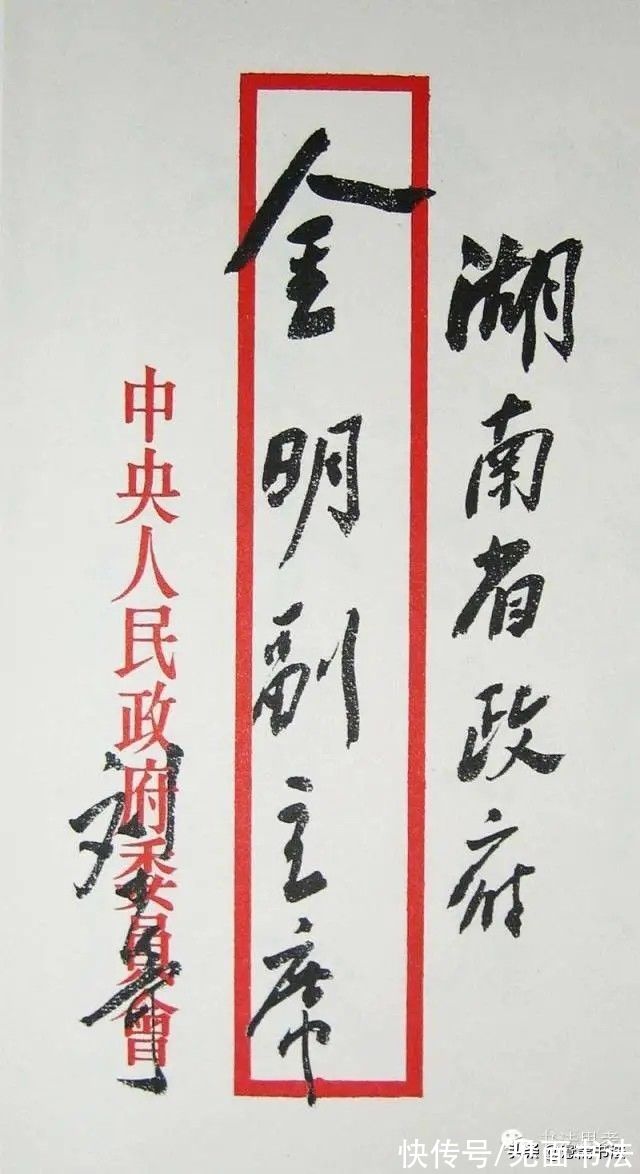 湖南省政府
金明副主席
中央人民政府委員會
快传号/见面书法